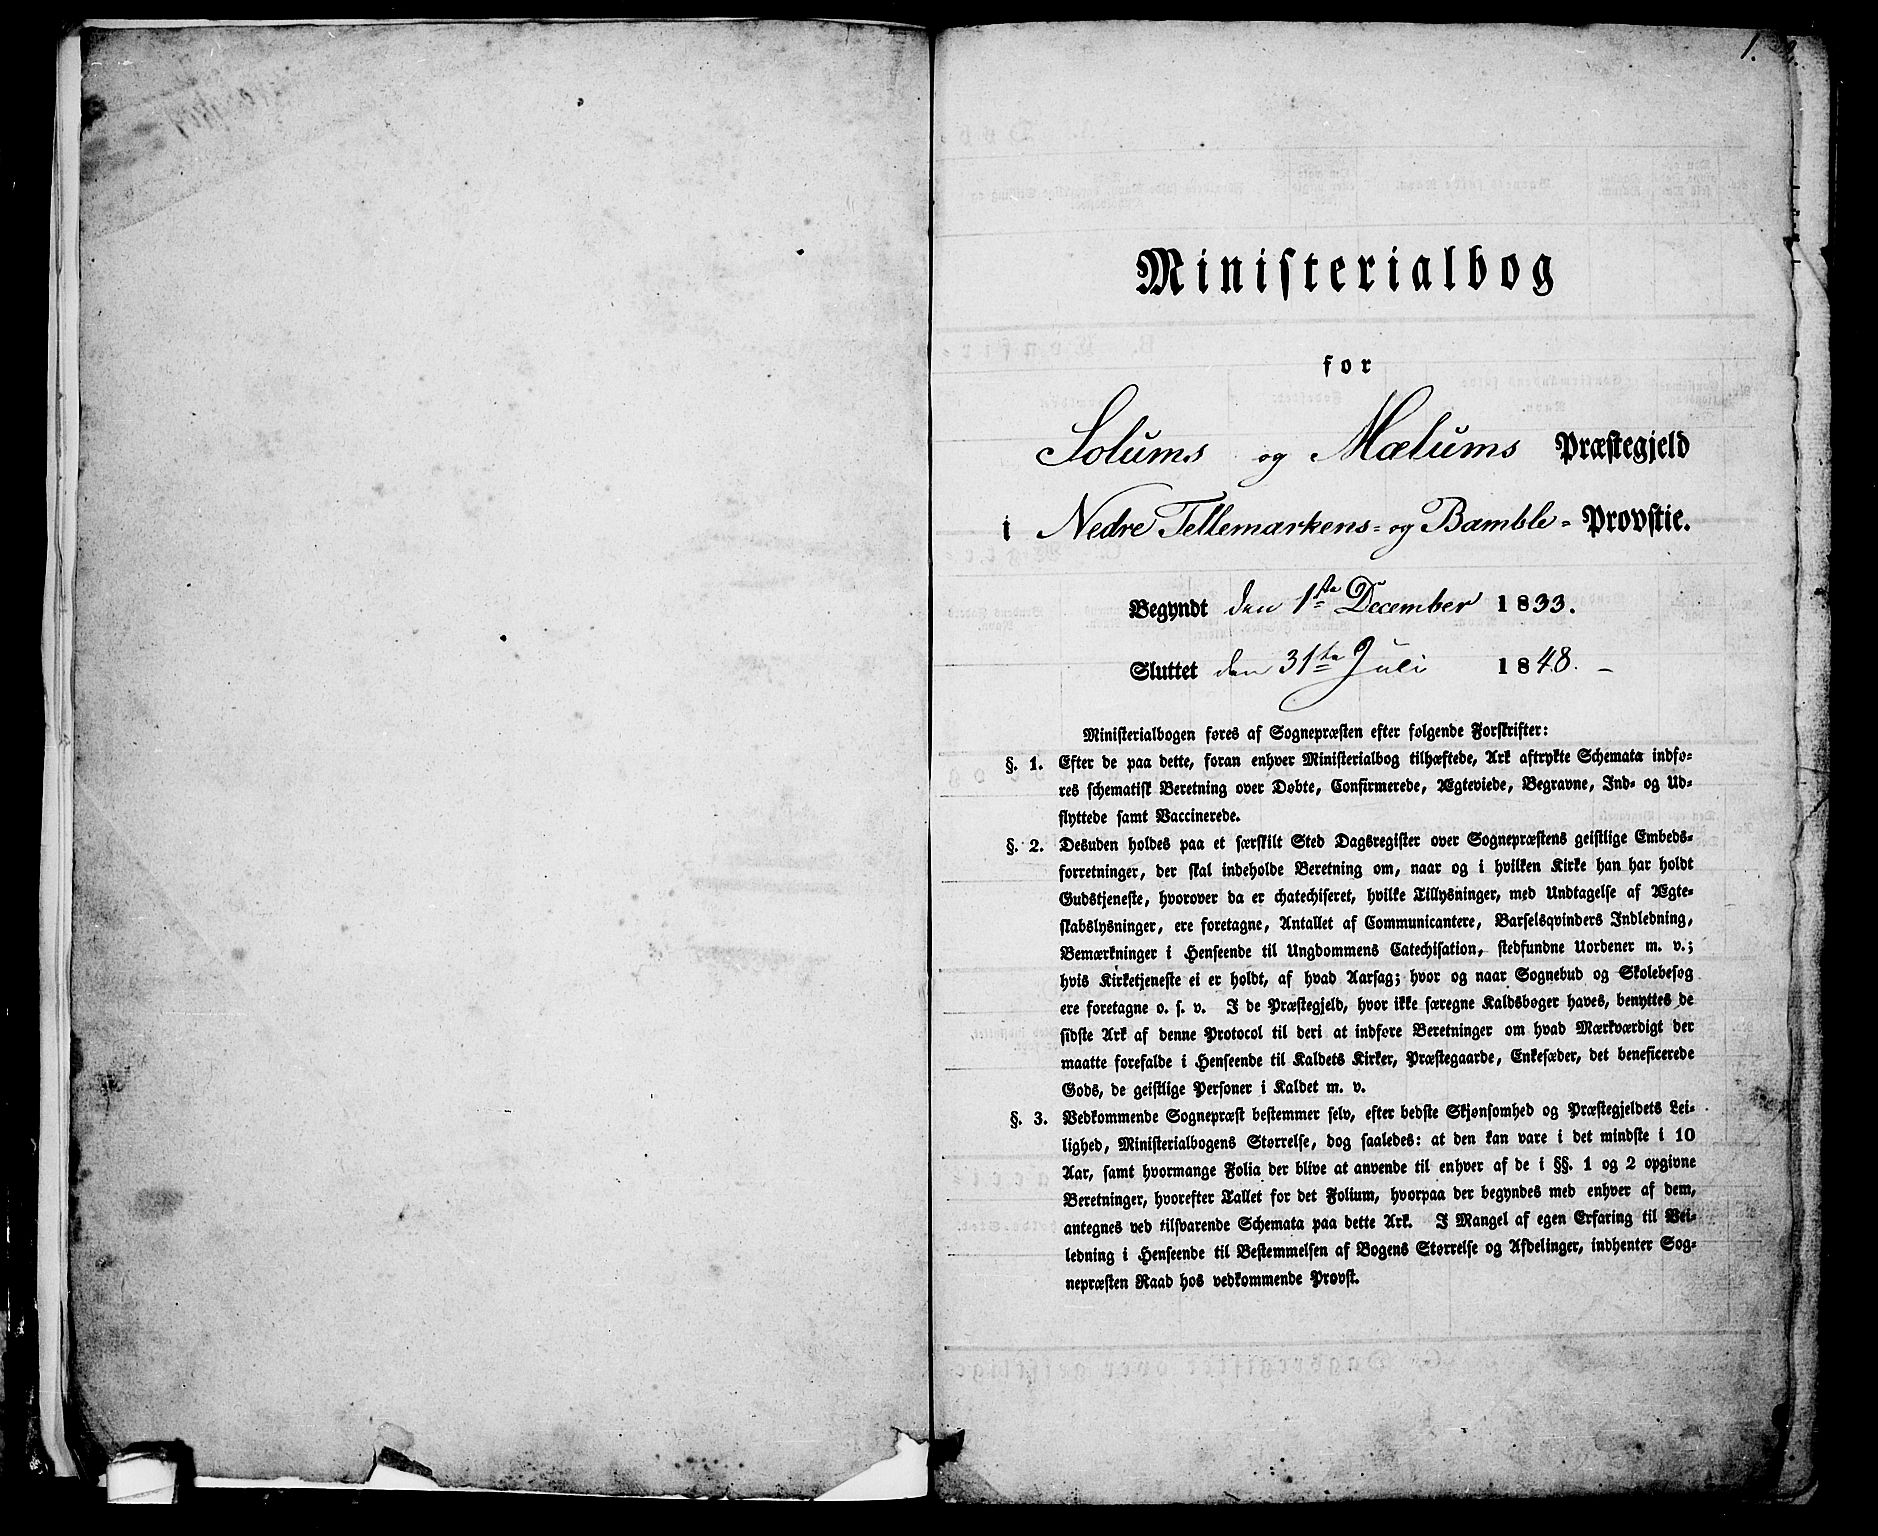 1.
Ministerialbog
for
Solums og Mælums Præstegjeld
i Nedre Tellemarkens- og Bamble- Provstie.
Begyndt den 1ste December 1833.
Sluttet den 31te Juli 1848. –
Ministerialbogen føres af Sognepræsten efter følgende Forskrifter:
§. 1. Efter de paa dette, foran enhver Ministerialbog tilhæftede, Ark aftrykte Schemata indfø-
res schematisk Beretning over Døbte, Confirmerede, Ægteviede, Begravne, Ind- og Ud-
flyttede samt Vaccinerede.
§. 2. Desuden holdes paa et særskilt Sted Dagsregister over Sognepræstens geistlige Embeds-
forretninger, der skal indeholde Beretning om, naar og i hvilken Kirke han har holdt
Gudstjeneste, hvorover da er chatechiseret, hvilke Tillysninger, med Undtagelse af Ægte-
skabslysninger, ere foretagne, Antallet af Communicantere, Barselsqvinders Indledning,
Bemærkninger i Henseende til Ungdommens Catechisation, stedfundne Uordener m. v.;
hvis Kirketjeneste ei er holdt, af hvad Aarsag; hvor og naar Sognebud og Skolebesøg
ere foretagne o. s. v. I de Præstegjeld, hvor ikke særegne Kaldsbøger haves, benyttes de
sidste Ark af denne Protocol til deri at indføre Beretninger om hvad Mærkværdigt der
maatte forefalde i Henseende til Kaldets Kirker, Præstegaarde, Enkesæder, det beneficerede
Gods, de geistlige Personer i Kaldet m. v.
§. 3. Vedkommende Sognepræst bestemmer selv, efter bedste Skjønsomhed og Præstegjeldets Lei-
lighed, Ministerialbogens Størrelse, dog saaledes: at den kan vare i det mindste i 10
Aar, samt hvormange Folia der blive at anvende til enhver af de i §§. 1 og 2 opgivne
Beretninger, hvorefter Tallet for det Folium, hvorpaa der begyndes med enhver af dem,
antegnes ved tilsvarende Schemata paa dette Ark. I Mangel af egen Erfaring til Vei-
ledning i Henseende til Bestemmelsen af Bogens Størrelse og Afdelinger, indhenter Sog-
nepræsten Raad hos vedkommende Provst.